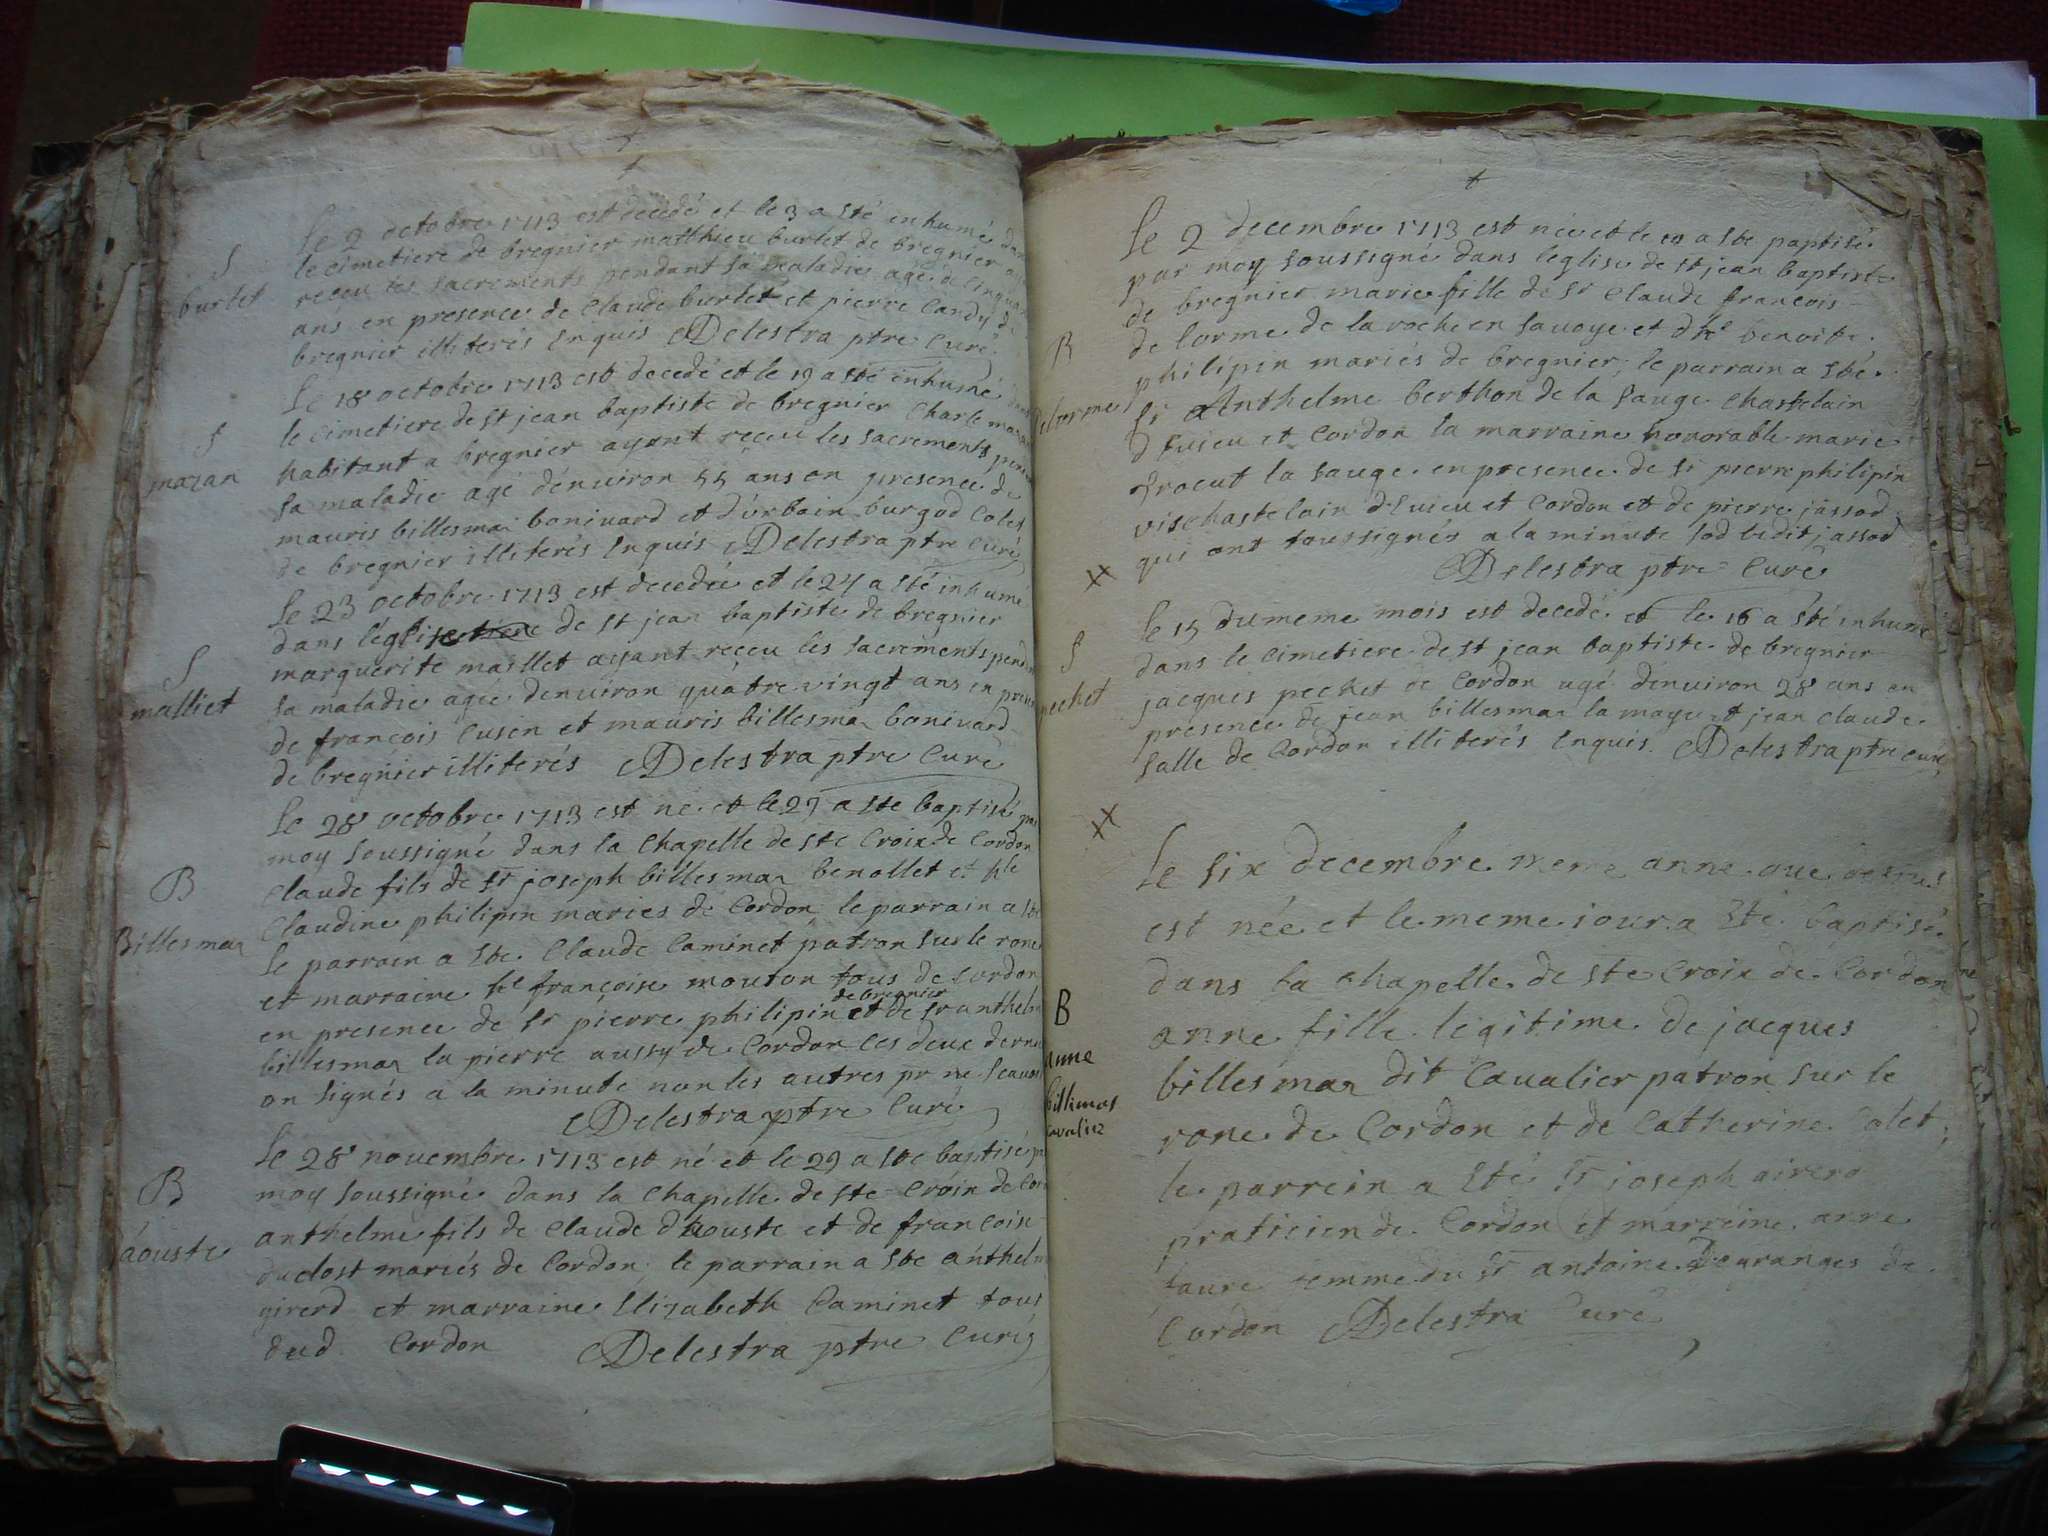 +
Le 2 octobre 1713 est decedé et le 3 a sté enhumé dans
le cimetiere de bregnier matthieu burlet de bregnier
S
burlet
receu les sacrements pendant sa maladie agé de cinqua
ans en presence de Claude burlet et pierre Cardy de
bregnier illiterés Enquis Delestra ptre Curé
Le 18 octobre 1713 est decedé et le 19 a sté enhumé dans
le cimetiere de st jean baptiste de bregnier Charle mazan
S
mazan
habitant a bregnier ayant receu les sacrements pend
sa maladie agé dénviron 55 ans en presence de
mauris billesmaz bonivard et d'urbain burgod Colet
de bregnier illiterés Enquis Delestra ptre Curé
Le 23 octobre 1713 est decedée et le 24 a sté inhumé
dans léglise de st jean baptiste de bregnier
S
malliet
marguerite maillet ayant receu les sacrements pend
sa maladie agée denviron quatre vingt ans en presen
de francois Cusin et mauris billesmaz bonivard
de bregnier illiterés Delestra ptre Curé
Le 28 octobre 1713 est né et le 29 a ste baptisé par
moy soussigné dans la Chapelle de ste Croix de Cordon
B
Billesmaz
Claude fils de sr joseph billesmaz benollet et hle
Claudine philipin mariés de Cordon le parrain a ste
le parrain a ste Claude Caminet patron sur le rone
et marraine hle françoise mouton tous de Cordon
de bregnier
en presence de sr pierre philipin et de sr anthelm
billesmaz la pierre aussy de Cordon les deux derni
on signés a la minute non les autres pr ne scavoi
Delestra ptre Curé
Le 28 novembre 1713 est né et le 29 a ste baptisé p
B
áouste
moy soussigné dans la Chapelle de ste Croix de Cor
anthelme fils de Claude dhaouste et de francoise
duclost mariés de Cordon le parrain a ste anthelm
girerd et marraine Elizabeth Caminet tous
dud. Cordon Delestra ptre Curé
+
Le 2 decembre 1713 est née et le 10 a ste baptisé
par moy soussigné dans leglise de st jean baptiste
de bregnier marie fille de sr Claude francois
B
delorme
de lorme de la roche en savoye et dlle benoite
philipin mariés de bregnier, le parrain a sté
sr Anthelme berthon de la sauge Chastelain
d Euieu et Cordon la marraine honorable marie
trocut la sauge en presence de sr pierre philipin
vischastelain d'Euieu et Cordon et de pierre jassod
qui ont soussignés a la minute sod ledit jassod
Delestra ptre Curé
xx
Le 15 du meme mois est decedé et le 16 a sté inhumé
S
pechet
dans le cimetiere de st jean baptiste de bregnier
jacques pechet de Cordon agé dénviron 28 ans en
presence de jean billesmaz la maye et jean claude
salle de Cordon illiterés Enquis. Delestra ptre curé
xx
Le six decembre meme anne que dessus
est née et le meme jour a sté baptisé
dans la chapelle de ste Croix de Cordon
B
anne
billimas
Cavalier
anne fille legitime de jacques
billesmaz dit Cavalier patron sur le
rone de Cordon et de Catherine Colet;
le parrein a sté sr joseph girerd
praticien de Cordon et marreine anne
faure femme du sr antoine Degranges de
Cordon Delestra Curé